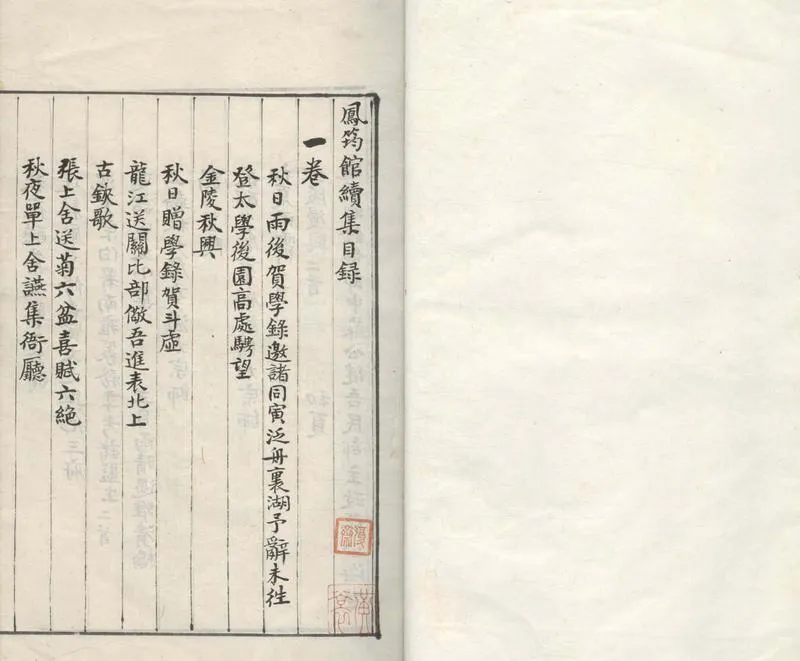 鳳筠館續集目錄
一卷
秋日雨後賀學錄邀諸同寅泛舟裏湖予辭未往
登太學後園高處騁望
金陵秋興
秋日贈學錄賀斗虛
龍江送關比部儆吾進表北上
古鋏歌
張上舍送菊六盆喜賦六絶
秋夜單上舍讌集衙廳